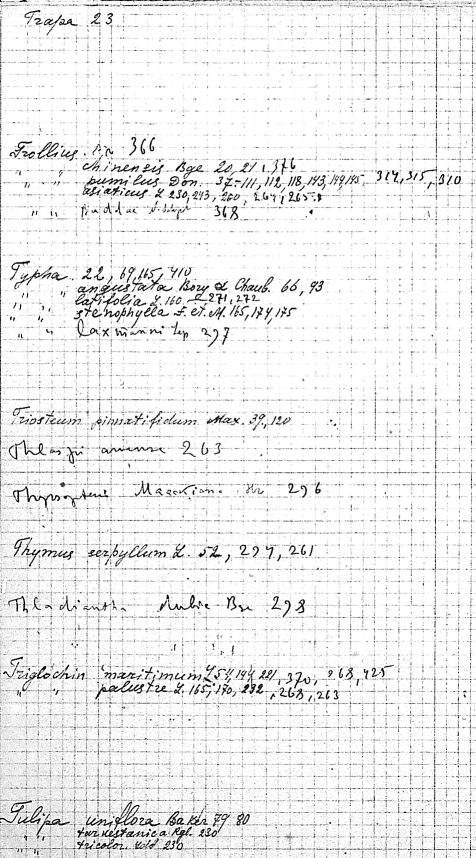 Trapa 23
Trollius sp. 366
" " chinensis Bge 20, 21, 376
" " pumilus Don. 37-111, 112, 118, 143, 149, 145, 314, 315, 310
" " asiaticus L 230, 243, 260, 264, 265
" " 368
Typha 22, 69, 165, 410
" " angustata Bory & Chaub. 66, 93
" " latifolia L. 160 271, 272
" " stenophylla F. et M. 165, 174, 175
" " laxmanni Lep 297
Triosteum pinnatifidum Max. 39, 120
Thlaspi arvense 263
Maackiana 296
Thymus serpyllum L. 52, 297, 261
Thladiantha dubia Bge 298
Triglochin maritimum L 54, 144, 221, 370, 268, 425
" " palustre L. 165, 170, 232, 268, 263
Tulipa uniflora Baker 79 80
" " turkestanica Rgl. 230
" " tricolor Ldb 230